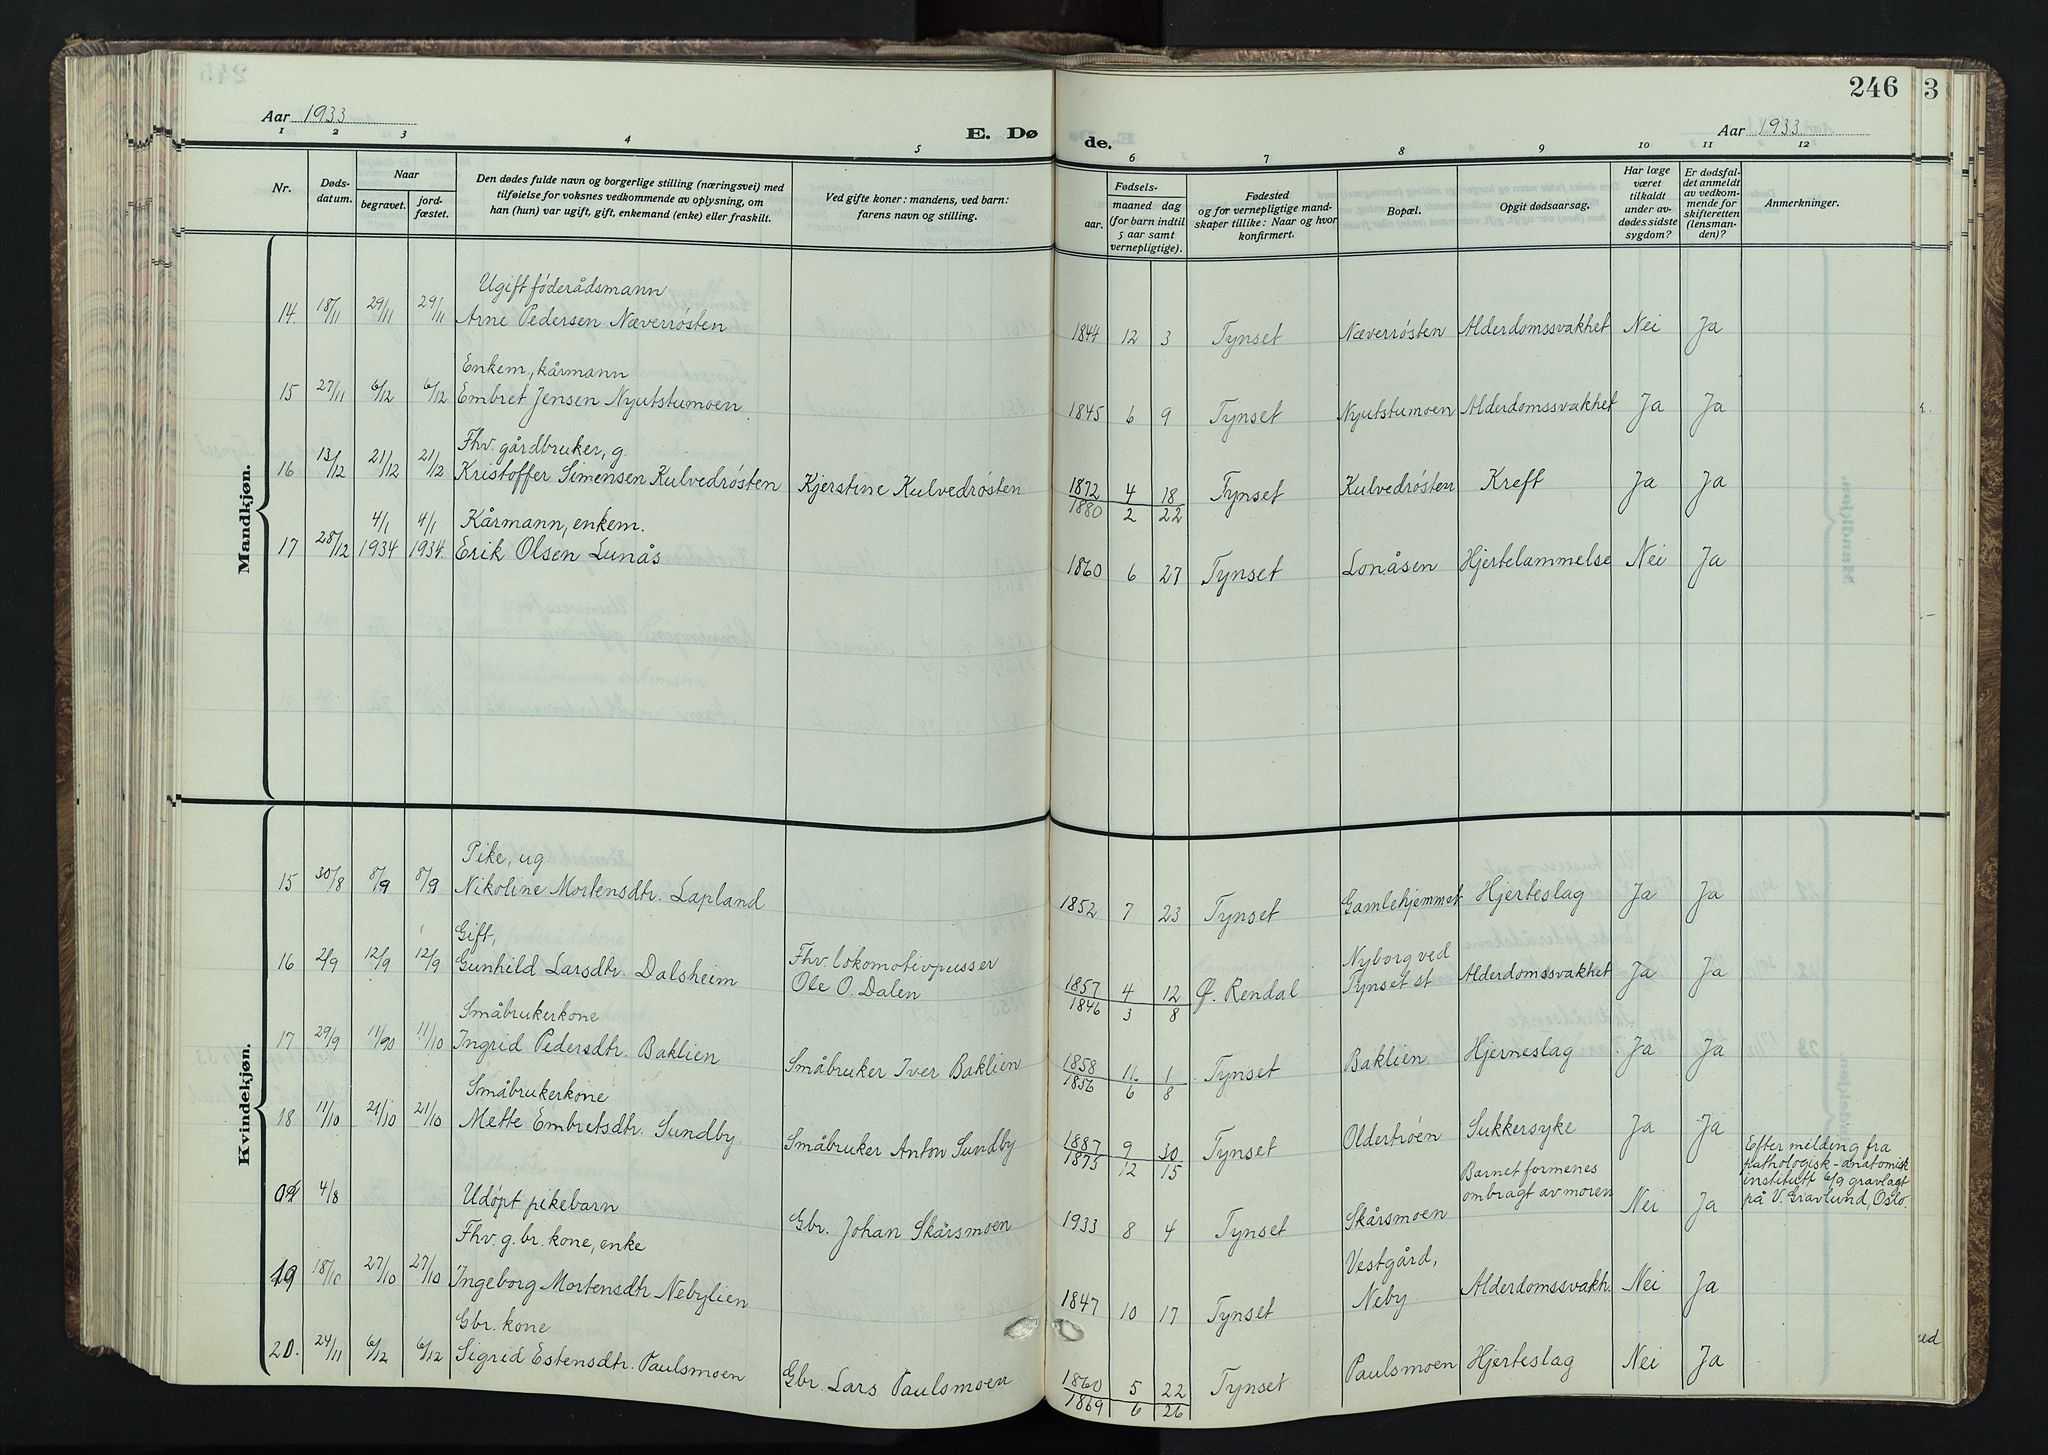 246
3
Aar 1933
E. Dø
de.
Aar 1933
1 2 3 4 5 6 7 8 9 10 11 12
Nr.
Døds-
datum.
Naar
begravet.
jord-
fæstet.
Den dødes fulde navn og borgerlige stilling (næringsvei) med
tilføielse for voksnes vedkommende av oplysning, om
han (hun) var ugift, gift, enkemand (enke) eller fraskilt.
Ved gifte koner: mandens, ved barn:
farens navn og stilling.
Fødsels-
aar.
maaned dag
(for barn indtil
5 aar samt
vernepligtige).
Fødested
og for vernepligtige mand-
skaper tillike: Naar og hvor
konfirmert.
Bopæl.
Opgit dødsaarsag.
Har læge
været
tilkaldt
under av-
dødes sidste
sygdom?
Er dødsfal-
det anmeldt
av vedkom-
mende for
skifteretten
(lensman-
den)?
Anmerkninger.
Mandkjøn.
Ugift föderådsmann
14. 18/11 29/11 29/11 Arne Pedersen Næverrøsten 1844 12 3 Tynset Næverrøsten Alderdomssvakhet Nei Ja
Enkem, kårmann
15 27/11 6/12 6/12 Embret Jensen Nyutstumoen 1845 6 9 Tynset Nyutstumoen Alderdomssvakhet Ja Ja
Fhv. gårdbruker, g.
16 13/12 21/12 21/12 Kristoffer Simensen Kulvedrøsten Kjerstine Kulvedrøsten 1872 4 18 Tynset Kulvedrøsten Kreft Ja Ja
1880 2 22
4/1 4/1 Kårmann, enkem.
17 28/12 1934 1934. Erik Olsen Lunås 1860 6 27 Tynset Lonåsen Hjertelammelse Nei Ja
Kvindekjøn.
Pike, ug.
15 30/8 8/9 8/9 Nikoline Mortensdtr. Lapland 1852 7 23 Tynset Gamlehjemmet Hjerteslag Ja Ja
Gift, Fhv lokomotivpusser Nyborg ved
16 2/9 12/9 12/9 Gunhild Larsdtr. Dalsheim Ole O. Dalen 1857 4 12 Ø. Rendal Tynset st Alderdomssvakhet Ja Ja
1846 3 8
Småbrukerkone
17 29/9 11/90 11/10 Ingrid Pedersdtr. Baklien Småbruker Iver Baklien 1858 11 1 Tynset Baklien Hjerneslag Ja Ja
1856 6 8
Småbrukerkone
18 11/10 21/10 21/10 Mette Embretsdtr. Sundby. Småbruker Anton Sundby 1887 9 30 Tynset Oldertrøen Sukkersyke Ja Ja
1875 12 15
Barnet formenes
ombragt av moren
Efter melding fra
pathologisk-anatomisk
institutt 6/9 gravlagt
på V. Gravlund, Oslo.
4/8 Udøpt pikebarn Gbr. Johan Skårsmoen 1933 8 4 Tynset Skårsmoen Nei Ja
Fhv. g. br. kone, enke Vestgård,
19 18/10 27/10 27/10 Ingeborg Mortensdtr Nebylien 1847 10 17 Tynset Neby Alderdomssvakh. Nei Ja
Gbr. kone
20. 24/11 6/12 6/12 Sigrid Estensdtr. Paulsmoen Gbr. Lars Paulsmoen 1860 5 22 Tynset Paulsmoen Hjerteslag Nei Ja
1869 6 26